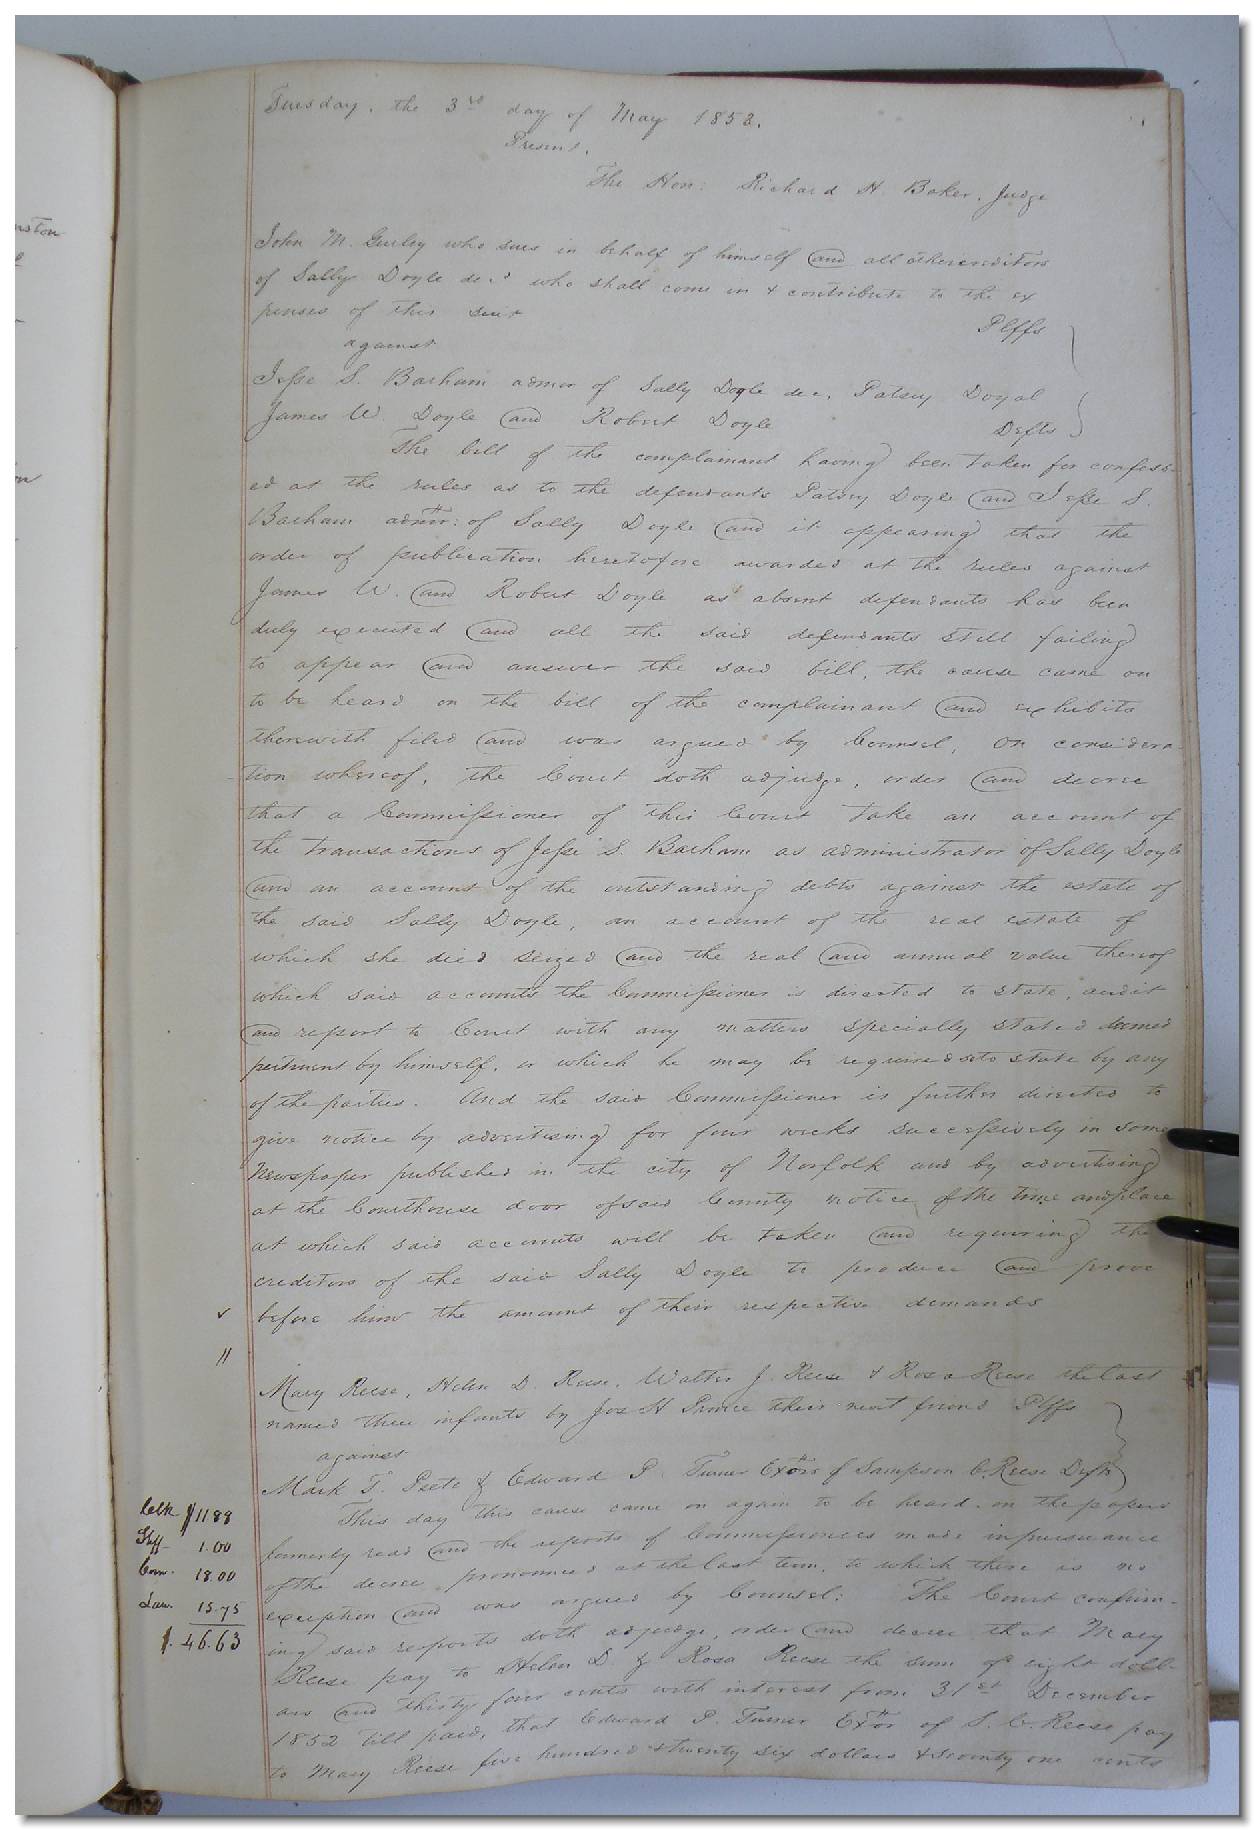 Tuesday, the 3rd day of May 1853.
Present,
The Hon: Richard H. Baker, Judge
John M. Gurley who sues in behalf of himself and all other creditors
of Sally Doyle dec.d who shall come in & contribute to the ex
penses of this suit Plffs
against
Jesse S. Barham admor of Sally Doyle dec, Patsey Doyal
James W. Doyle and Robert Doyle Defts
The bill of the complainant having been taken for confess-
ed at the rules as to the defendants Patsey Doyle and Jesse S.
Barham admor: of Sally Doyle and it appearing that the
order of publication heretofore awarded at the rules against
James W. and Robert Doyle as absent defendants has been
duly executed and all the said defendants still failing
to appear and answer the said bill, the cause came on
to be heard on the bill of the complainant and exhibits
therewith filed and was argued by Counsel, on considera-
tion whereof, the Court doth adjudge, order and decree
that a Commissioner of this Court take an account of
the transactions of Jesse S. Barham as administrator of Sally Doyle
and an account of the outstanding debts against the estate of
the said Sally Doyle, an account of the real estate of
which she died seized and the real and annual value thereof
which said accounts the Commissioner is directed to state, audit
and report to Court with any matters specially stated deemed
pertinent by himself, or which he may be required to state by any
of the parties. And the said Commissioner is further directed to
give notice by advertising for four weeks successively in some
Newspaper published in the city of Norfolk and by advertising
at the Courthouse door of said County notice of the time and place
at which said accounts will be taken and requiring the
creditors of the said Sally Doyle to produce and prove
before him the amount of their respective demands
Mary Reese, Helen D. Reese, Walter J. Reese & Rosa Reese the last
named three infants by Jos H Prince their next friend Plffs
against
Mark T. Peete & Edward P. Turner Exors of Sampson C. Reese Defts
This day this cause came on again to be heard on the papers
formerly read and the reports of Commissioners made in pursuance
of the decree pronounced at the last term, to which there is no
exception and was argued by Counsel. The Court confirm-
ing said reports doth adjudge, order and decree that Mary
Reese pay to Helen D. & Rosa Reese the sum of eight doll-
ars and thirty four cents with interest from 31st December
1852 till paid, that Edward P. Turner Exor of S. C. Reese pay
to Mary Reese five hundred & twenty six dollars & seventy one cents
Clk $11 88
Shff 1.00
Com. 18.00
Law. 15.75
$. 46.63